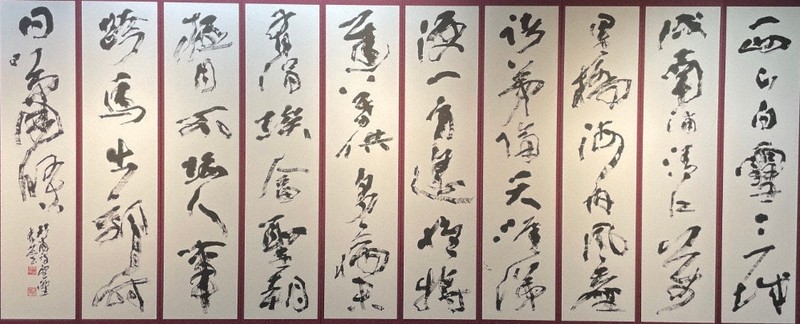 西山白雪三城
戍南浦清江萬
里橋海内風塵
諸弟隔天涯涕
淚一身遙惟將
遲暮供多病未
有涓埃答聖朝
極目不堪人事
跨馬出郊時
日蕭條